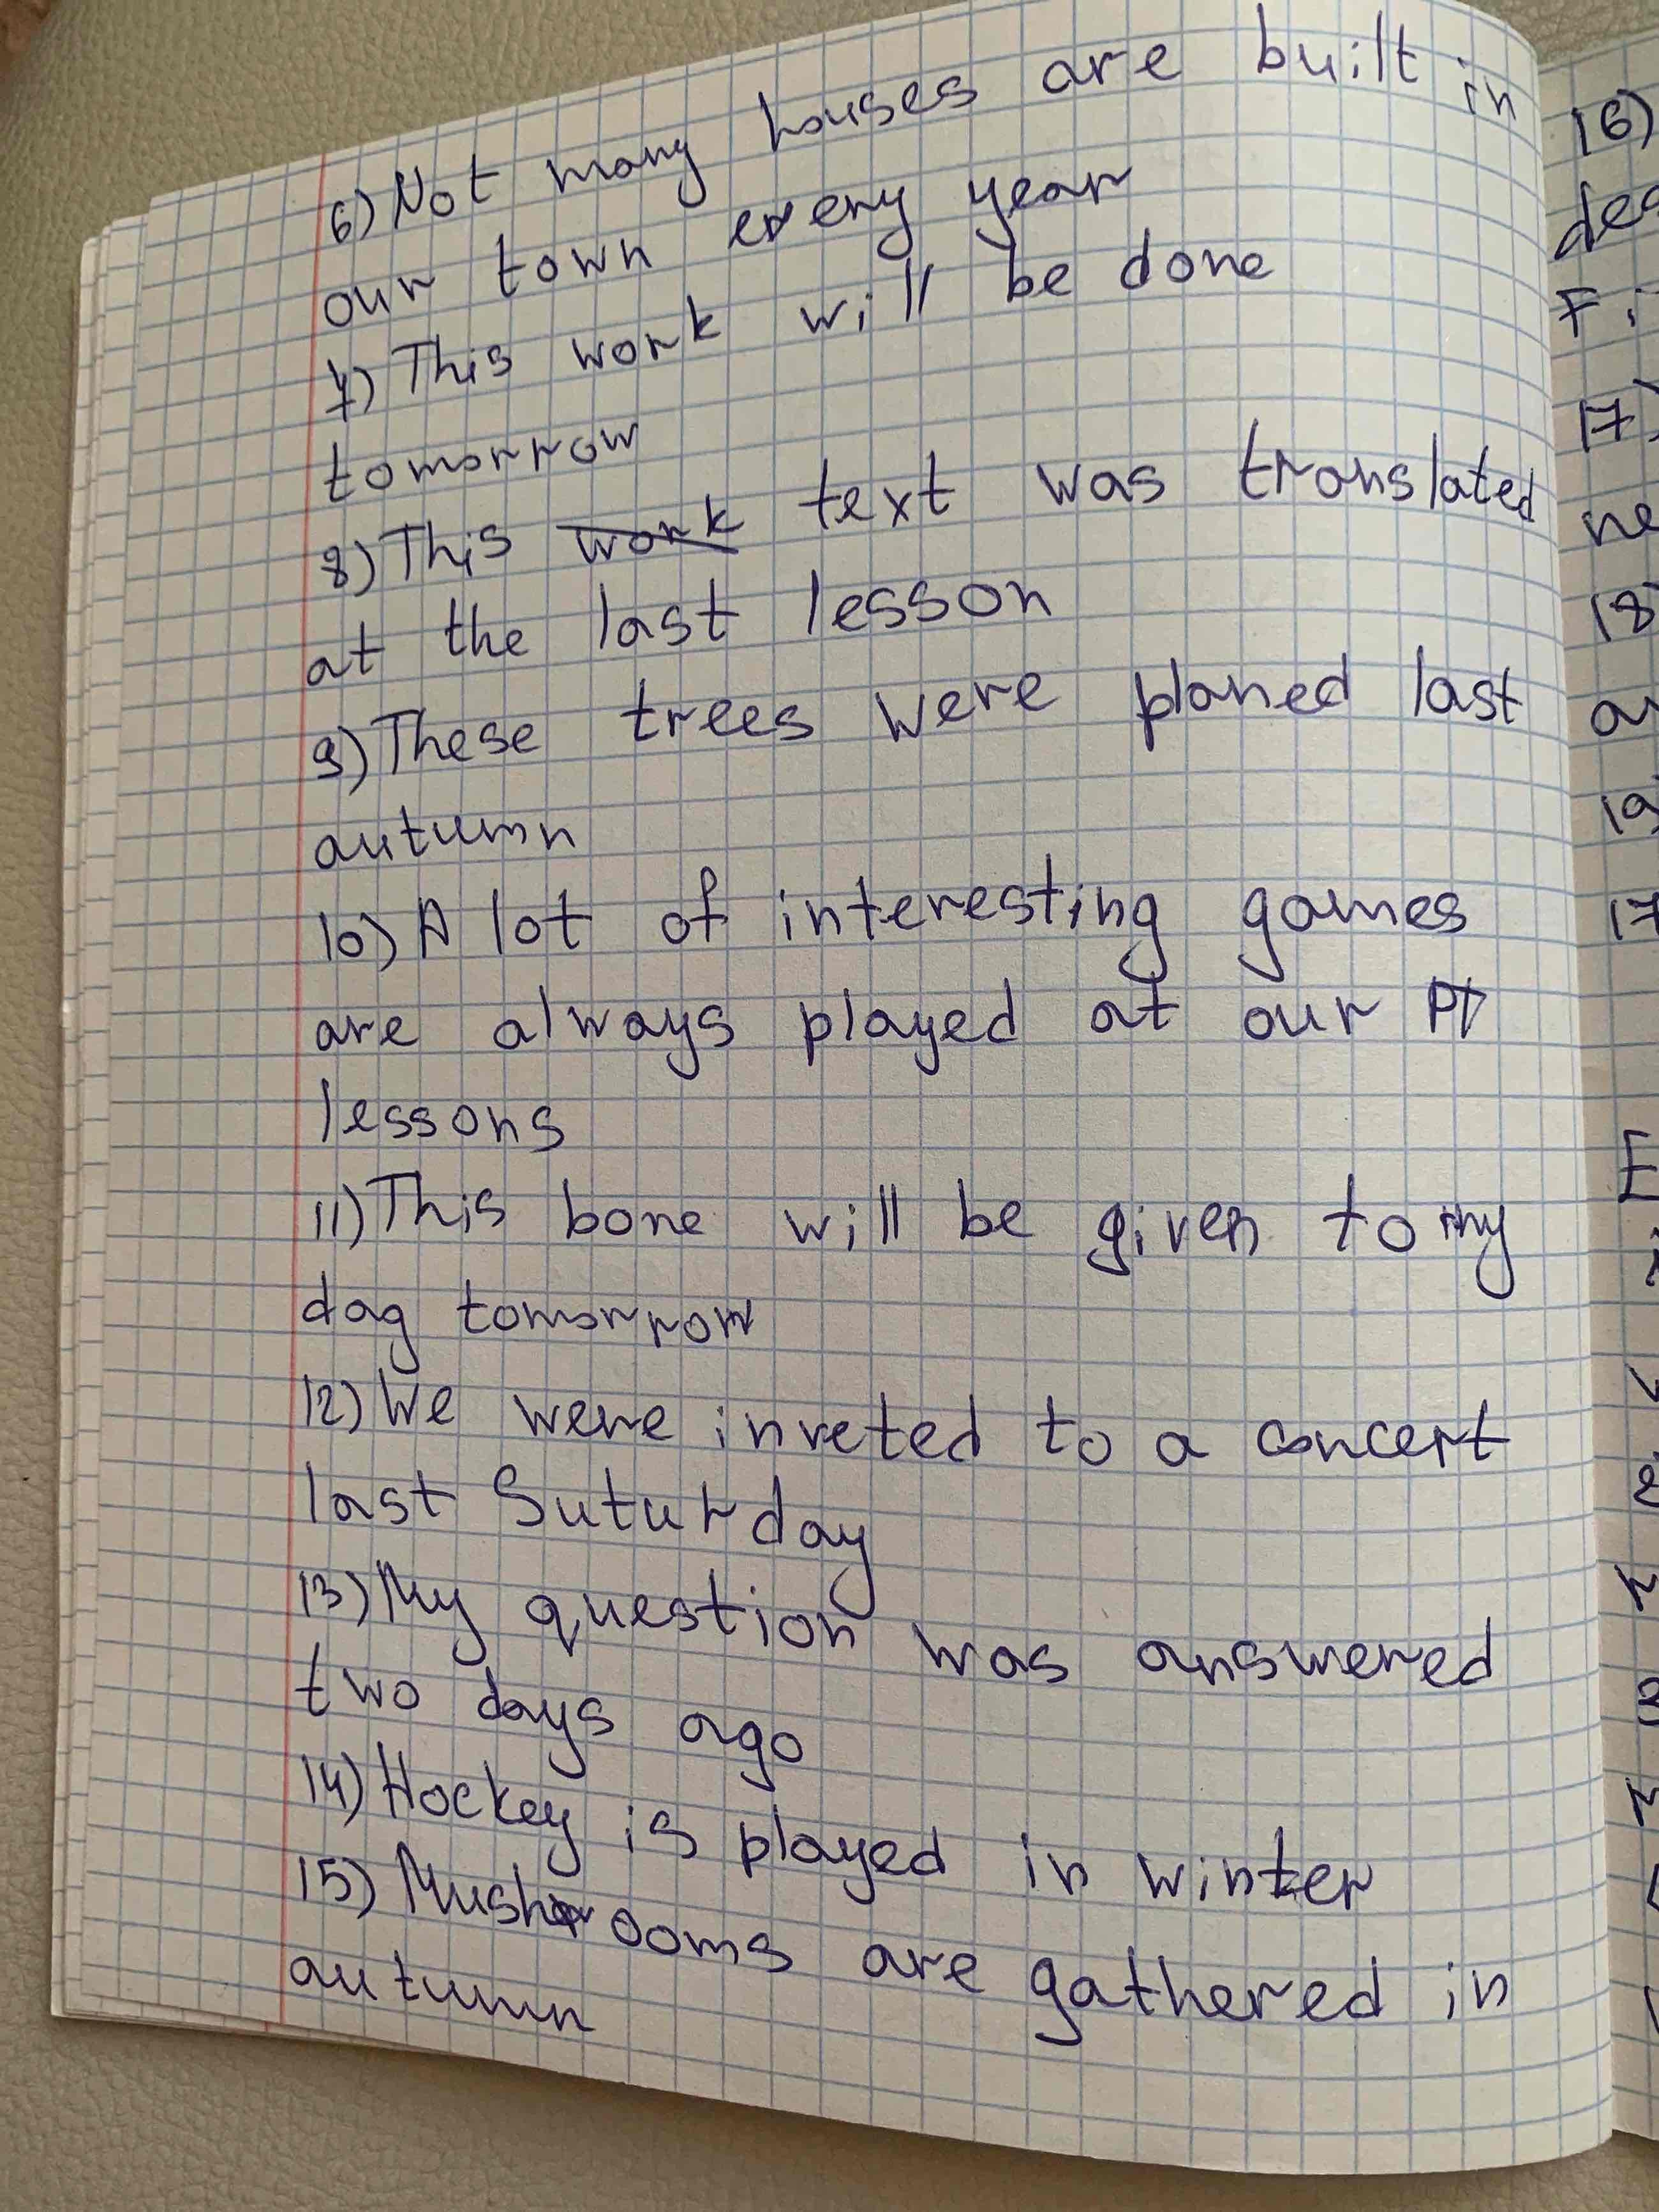 6) Not many houses are built in
our town every year
7) This work will be done
tomorrow
8) This work text was translated
at the last lesson
9) These trees were planed last
autumn
10) A lot of interesting games
are always played at our PT
lessons
11) This bone will be given to my
dog tomorrow
12) We were inveted to a concert
last Suturday
13) My question was answered
two days ago
14) Hockey is played in winter
15) Mushrooms are gathered in
autumn
16)
17)
18
19
17